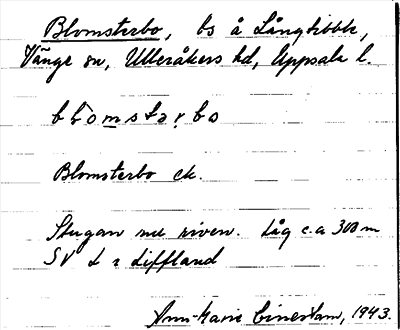 Blomsterbo, bs å Långtibble,
Vänge sn, Ulleråkers hd, Uppsala l.
Blomsterbo ek.
Stugan nu riven. Låg c.a 300 m
SV L i Liffland
Ann-Marie Einerstam, 1943.